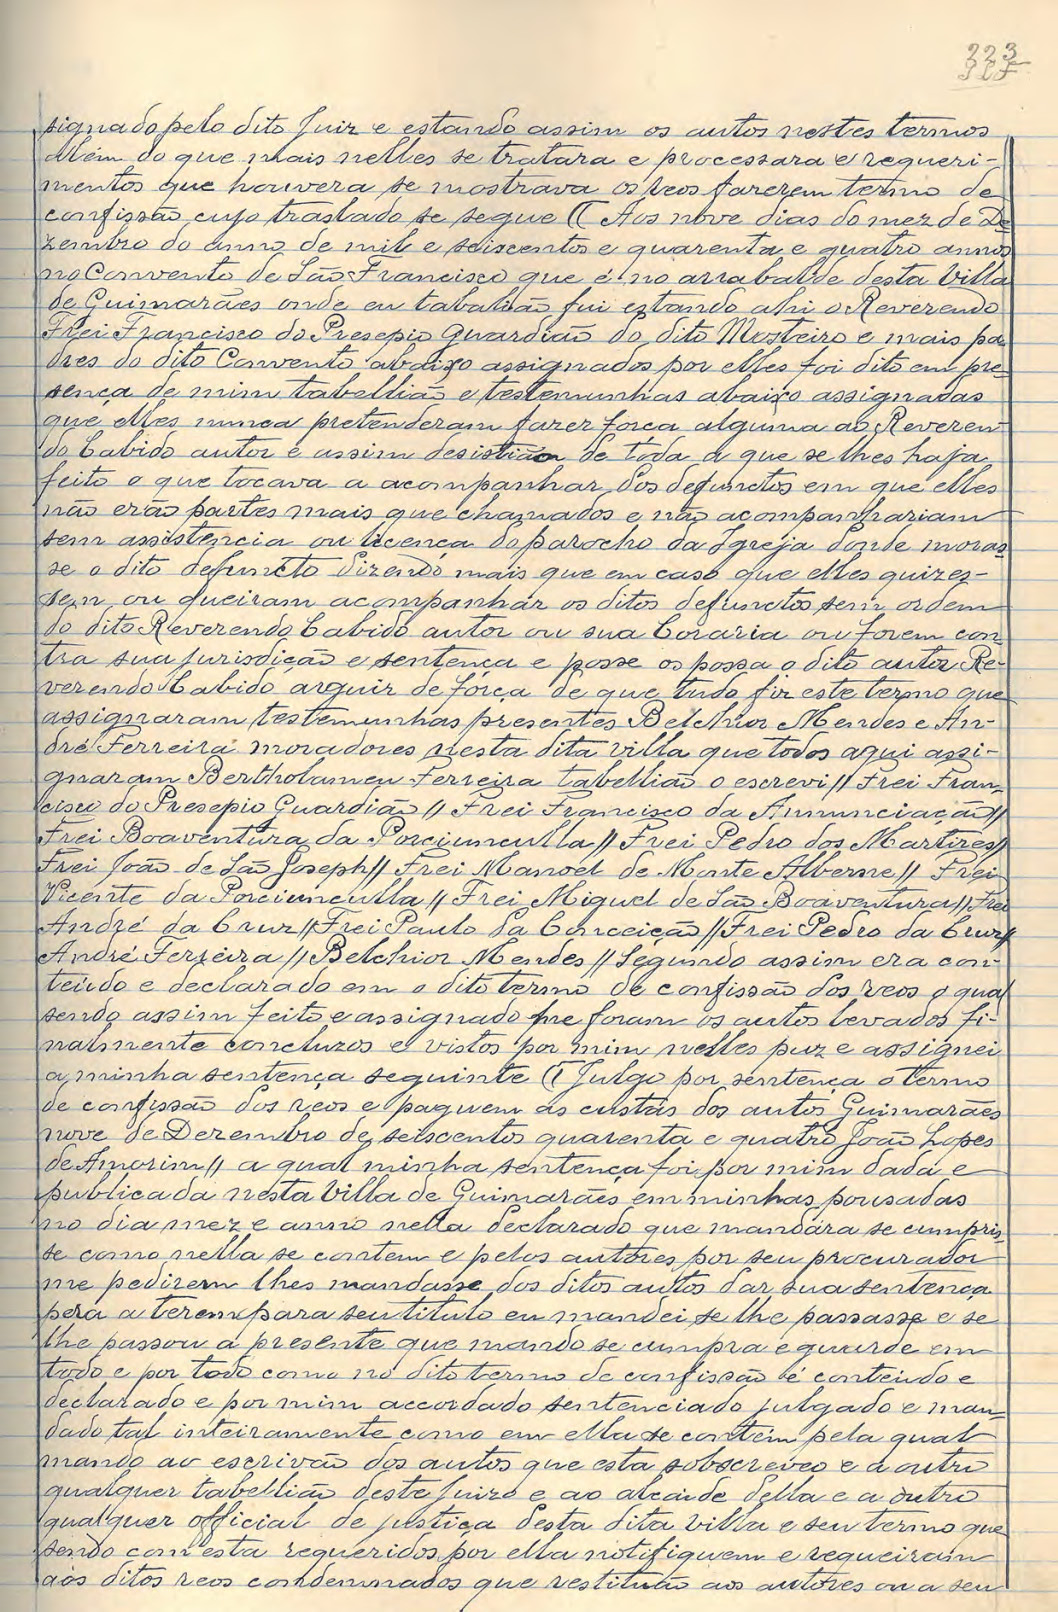 223
signado pelo dito Juiz e estando assim os autos nestes termos
Além do que mais nelles se tratara e processara e requeri-
mentos que houvera se mostrava os reos fazerem termo de
confissão cujo traslado se segue (( Aos nove dias do mez de De-
zembro do anno de mil e seiscentos e quarenta e quatro annos
no Convento de São Francisco que é no arrabalde desta Villa
de Guimarães onde eu tabalião fui estando ahi o Reverendo
Frei Francisco do Presepio Guardião do dito Mosteiro e mais pa-
dres do dito Convento abaixo assignados por elles foi dito em pre-
sença de mim tabellião e testemunhas abaixo assignadas
que elles nunca pretenderam fazer força alguma ao Reveren
do Cabido autor e assim desistião de toda a que se lhes haja
feito o que tocava a acompanhar dos defunctos em que elles
não erão partes mais que chamados e não acompanhariam
sem assistencia ou licença do parocho da Igreja donde moras-
se o dito defuncto dizendo mais que em caso que elles quizes-
sem ou queiram acompanhar os ditos defunctos sem ordem
do dito Reverendo Cabido autor ou sua Coraria ou forem con-
tra sua jurisdição e sentença e posse os possa o dito autor Re-
verendo Cabido arguir de fórça de que tudo fiz este termo que
assignaram testemunhas presentes Belchior Mendes e An-
dré Ferreira moradores nesta dita villa que todos aqui assi-
gnaram Bertholameu Ferreira tabellião o escrevi // Frei Fran-
cisco do Presepio Guardião // Frei Francisco da Annunciação //
Frei Boaventura da Porciuncula // Frei Pedro dos Martires //
Frei João de São Joseph // Frei Manoel de Monte Alberne // Frei
Vicente da Porciuncula // Frei Miguel de São Boaventura // Frei
André da Cruz // Frei Paulo da Conceição // Frei Pedro da Cruz //
André Ferreira // Belchior Mendes // Segundo assim era con-
teúdo e declarado em o dito termo de confissão dos reos o qual
sendo assim feito e assignado me foram os autos levados fi-
nalmente concluzos e vistos por mim nelles puz e assignei
a minha sentença seguinte (( Julgo por sentença o termo
de confissão dos reos e paguem as custas dos autos Guimarães
nove de Dezembro de seiscentos quarenta e quatro João Lopes
de Amorim // a qual minha sentença foi por mim dada e
publicada nesta Villa de Guimarães em minhas pousadas
no dia mez e anno nella declarado que mandára se cumpris-
se como nella se contem e pelos autores por seu procurador
me pedirem lhes mandasse dos ditos autos dar sua sentença
pera a terem para seu titulo eu mandei se lhe passasse e se
lhe passou a presente que mando se cumpra e guarde em
todo e por todo como no dito termo de confissão é conteúdo e
declarado e por mim accordado sentenciado julgado e man-
dado tal inteiramente como em ella se contém pela qual
mando ao escrivão dos autos que esta sobscreveo e a outro
qualquer tabellião deste Juizo e ao alcaide della e a outro
qualquer official de justiça desta dita Villa e seu termo que
sendo com esta requeridos por ella notifiquem e requeiram
aos ditos reos condemnados que restituão aos autores ou a seu